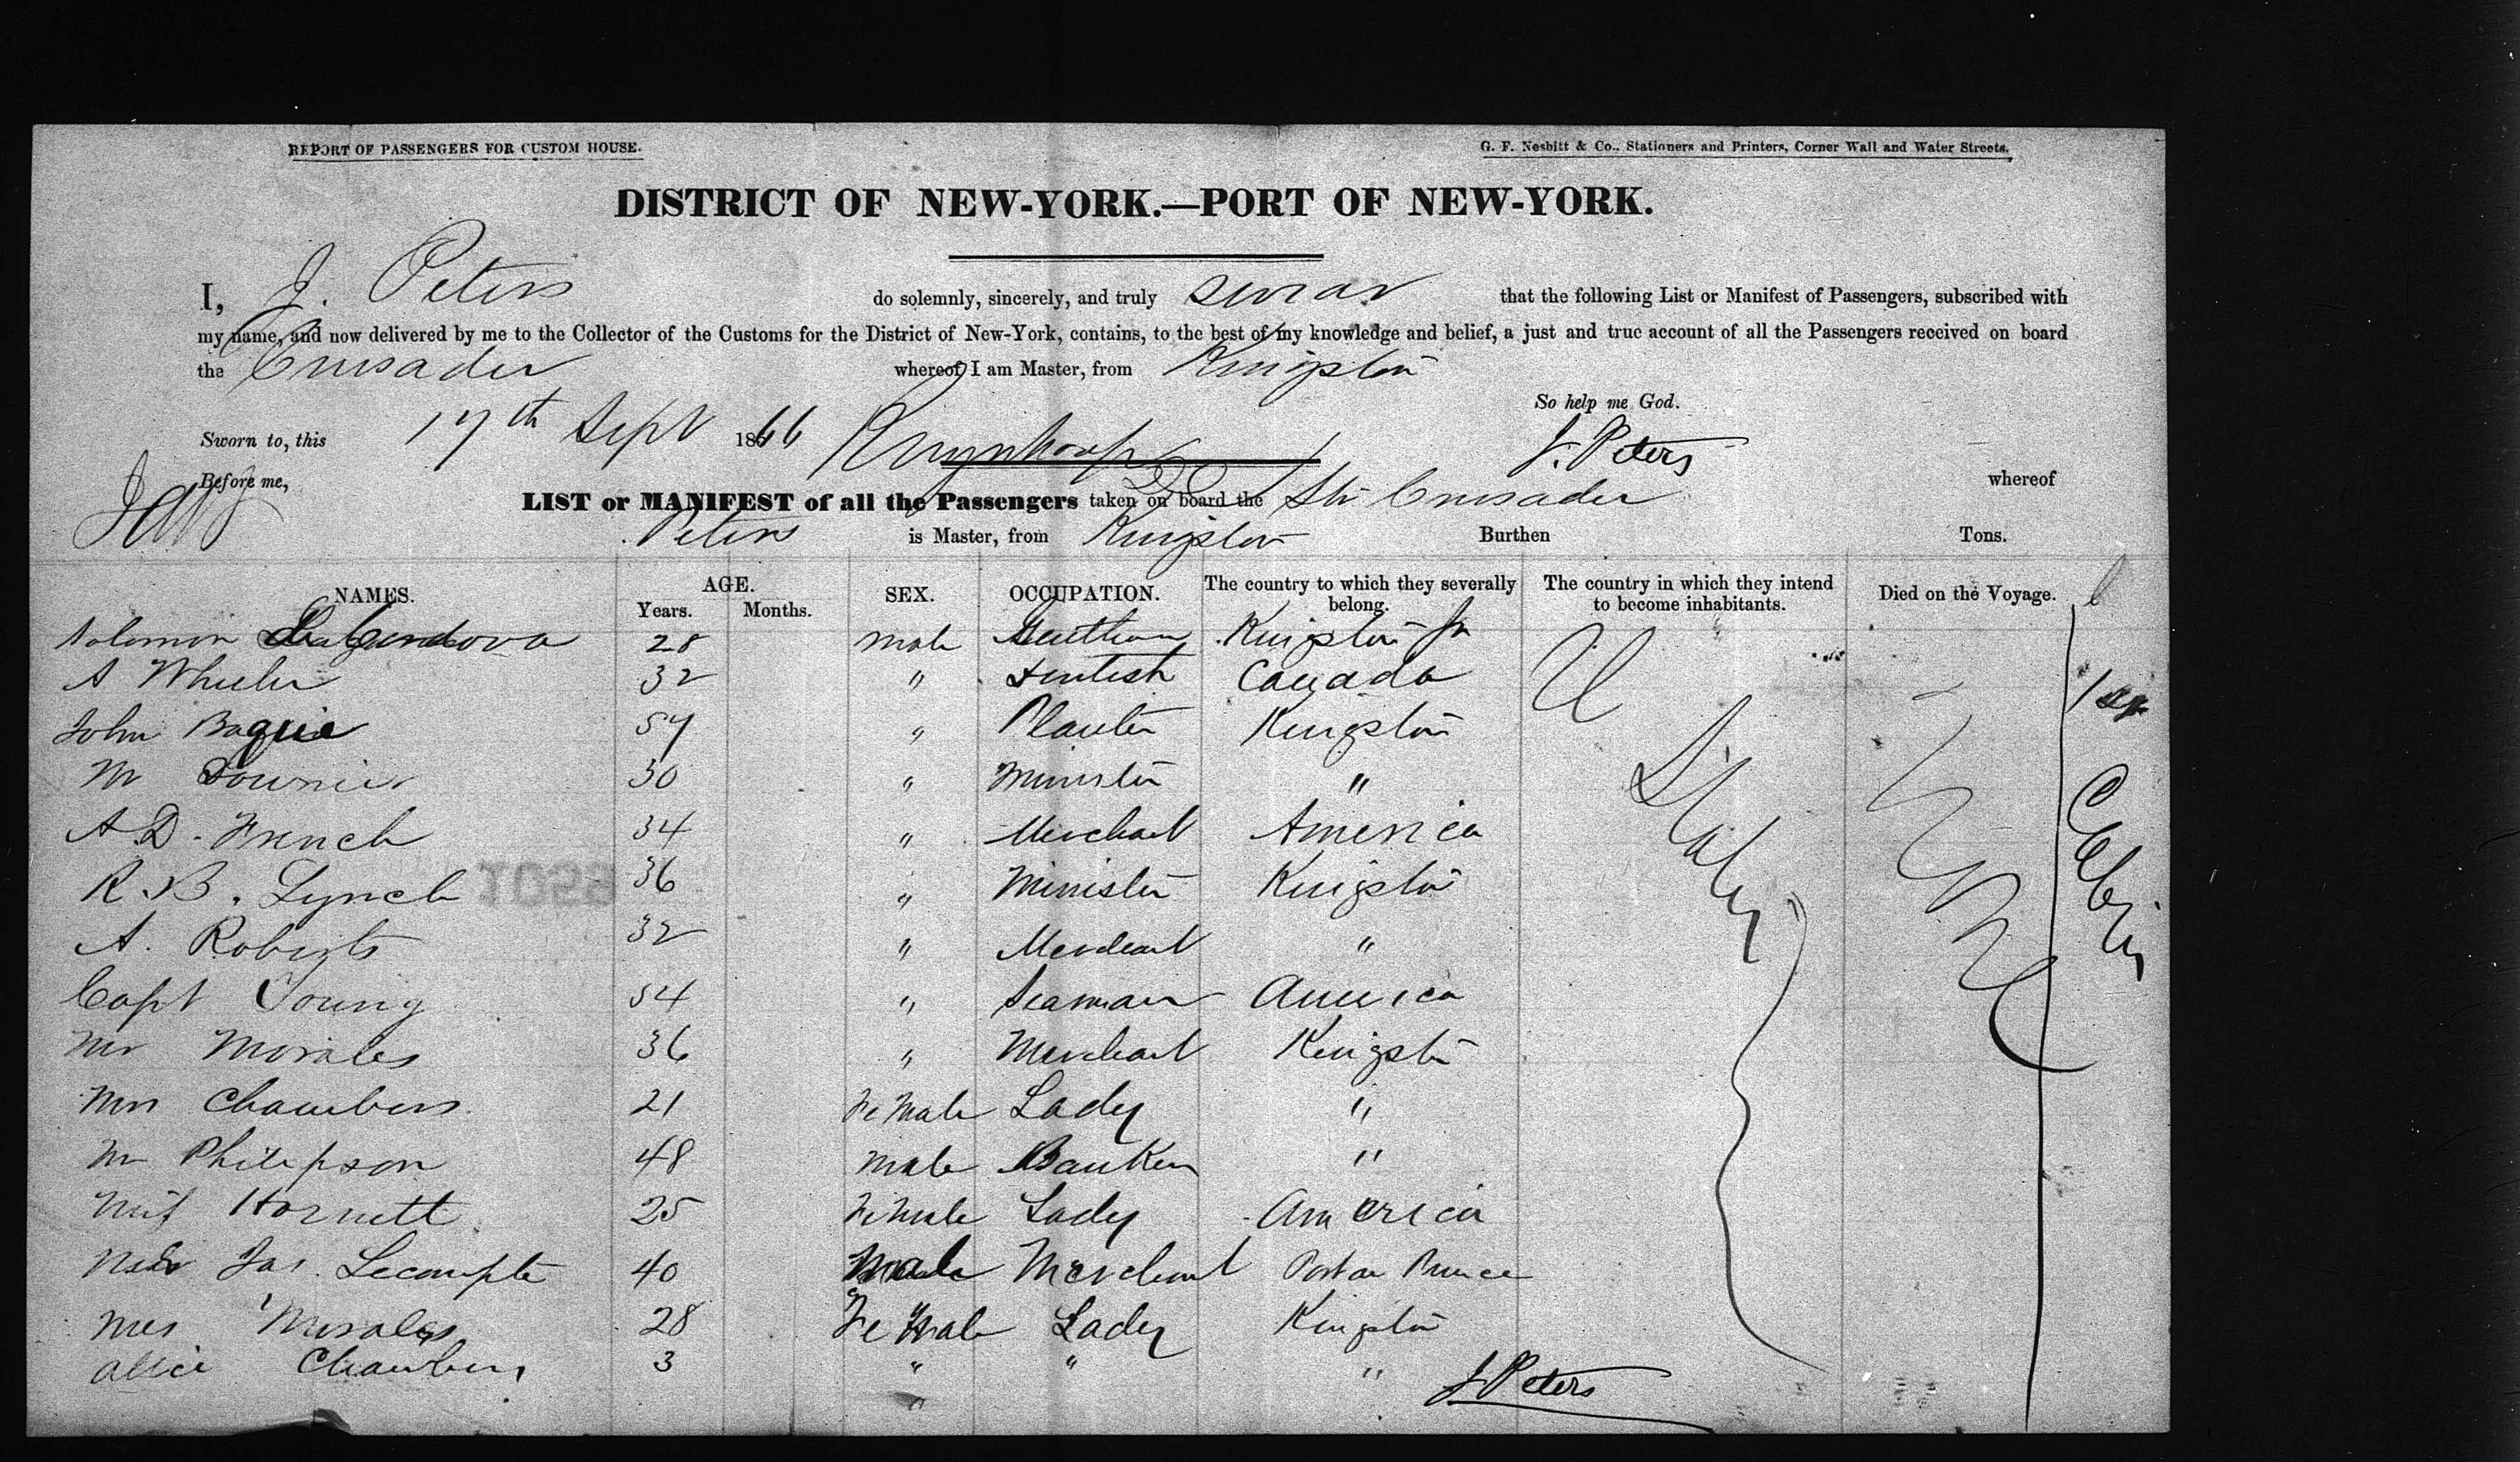 REPORT OF PASSENGERS FOR CUSTOM HOUSE.
G. F. Nesbitt & Co., Stationers and Printers, Corner Wall and Water Streets.
DISTRICT OF NEW-YORK.—PORT OF NEW-YORK.
I, J. Peters do solemnly, sincerely, and truly swear that the following List or Manifest of Passengers, subscribed with
my name, and now delivered by me to the Collector of the Customs for the District of New-York, contains, to the best of my knowledge and belief, a just and true account of all the Passengers received on board
the Crusader whereof I am Master, from Kingston
So help me God.
Sworn to, this 17th Sept 1866 J. Peters
Before me,
LIST or MANIFEST of all the Passengers taken on board the Str Crusader whereof
Peters is Master, from Kingston Burthen Tons.
NAMES. AGE. Years. Months. SEX. OCCUPATION. The country to which they severally belong. The country in which they intend to become inhabitants. Died on the Voyage.
Solomon 28 male Kingston Ja
A Wheeler 32 " Dentist Canada
John Baquie 57 " Planter Kingston
Mr 30 " Minister "
A D. French 34 " Merchant America
R. B. Lynch 36 " Minister Kingston
A. Roberts 32 " Merchant "
Capt Young 54 " Seaman America
Mr Morales 36 " Merchant Kingston
Mrs Chambers 21 Female Lady "
Mr Philipson 48 male Banker "
Miss Hornett 25 Female Lady America
Jas. Lecompte 40 Male Merchant Port au Prince
Mrs Morales 28 Female Lady Kingston
Alice Chambers 3 " " "
"
U States
None
Cabin
J Peters